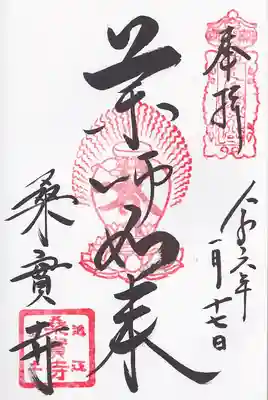 奉拝
令和六年
一月十七日
薬師如来
桑實寺
近江
桑實寺